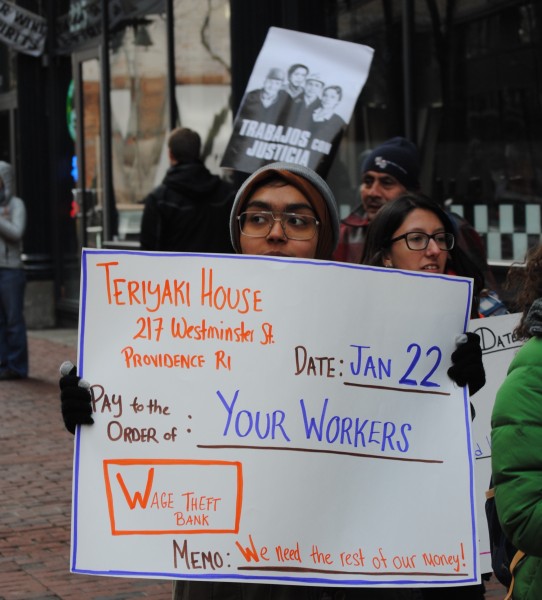 TRABAJOS CON
JUSTICIA
TERIYAKI HOUSE
217 Westminster St.
PROVIDENCE RI
DATE: JAN 22
PAY to the
ORDER of : YOUR WORKERS
WAGE THEFT
BANK
MEMO: We need the rest of our money!
DATE: